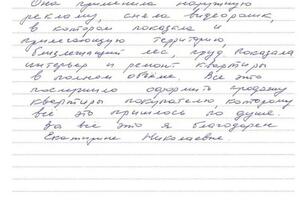 Она применила наружную
рекламу, сняла видеоролик,
в котором показала и
прилегающую территорию
близлежащий лес, пруд показала
интерьер и ремонт квартиры
в полном объёме. Все это
послужило оформить продажу
квартиры покупателю, которому
все это пришлось по душе.
За все это я благодарен
Екатерине Николаевне.